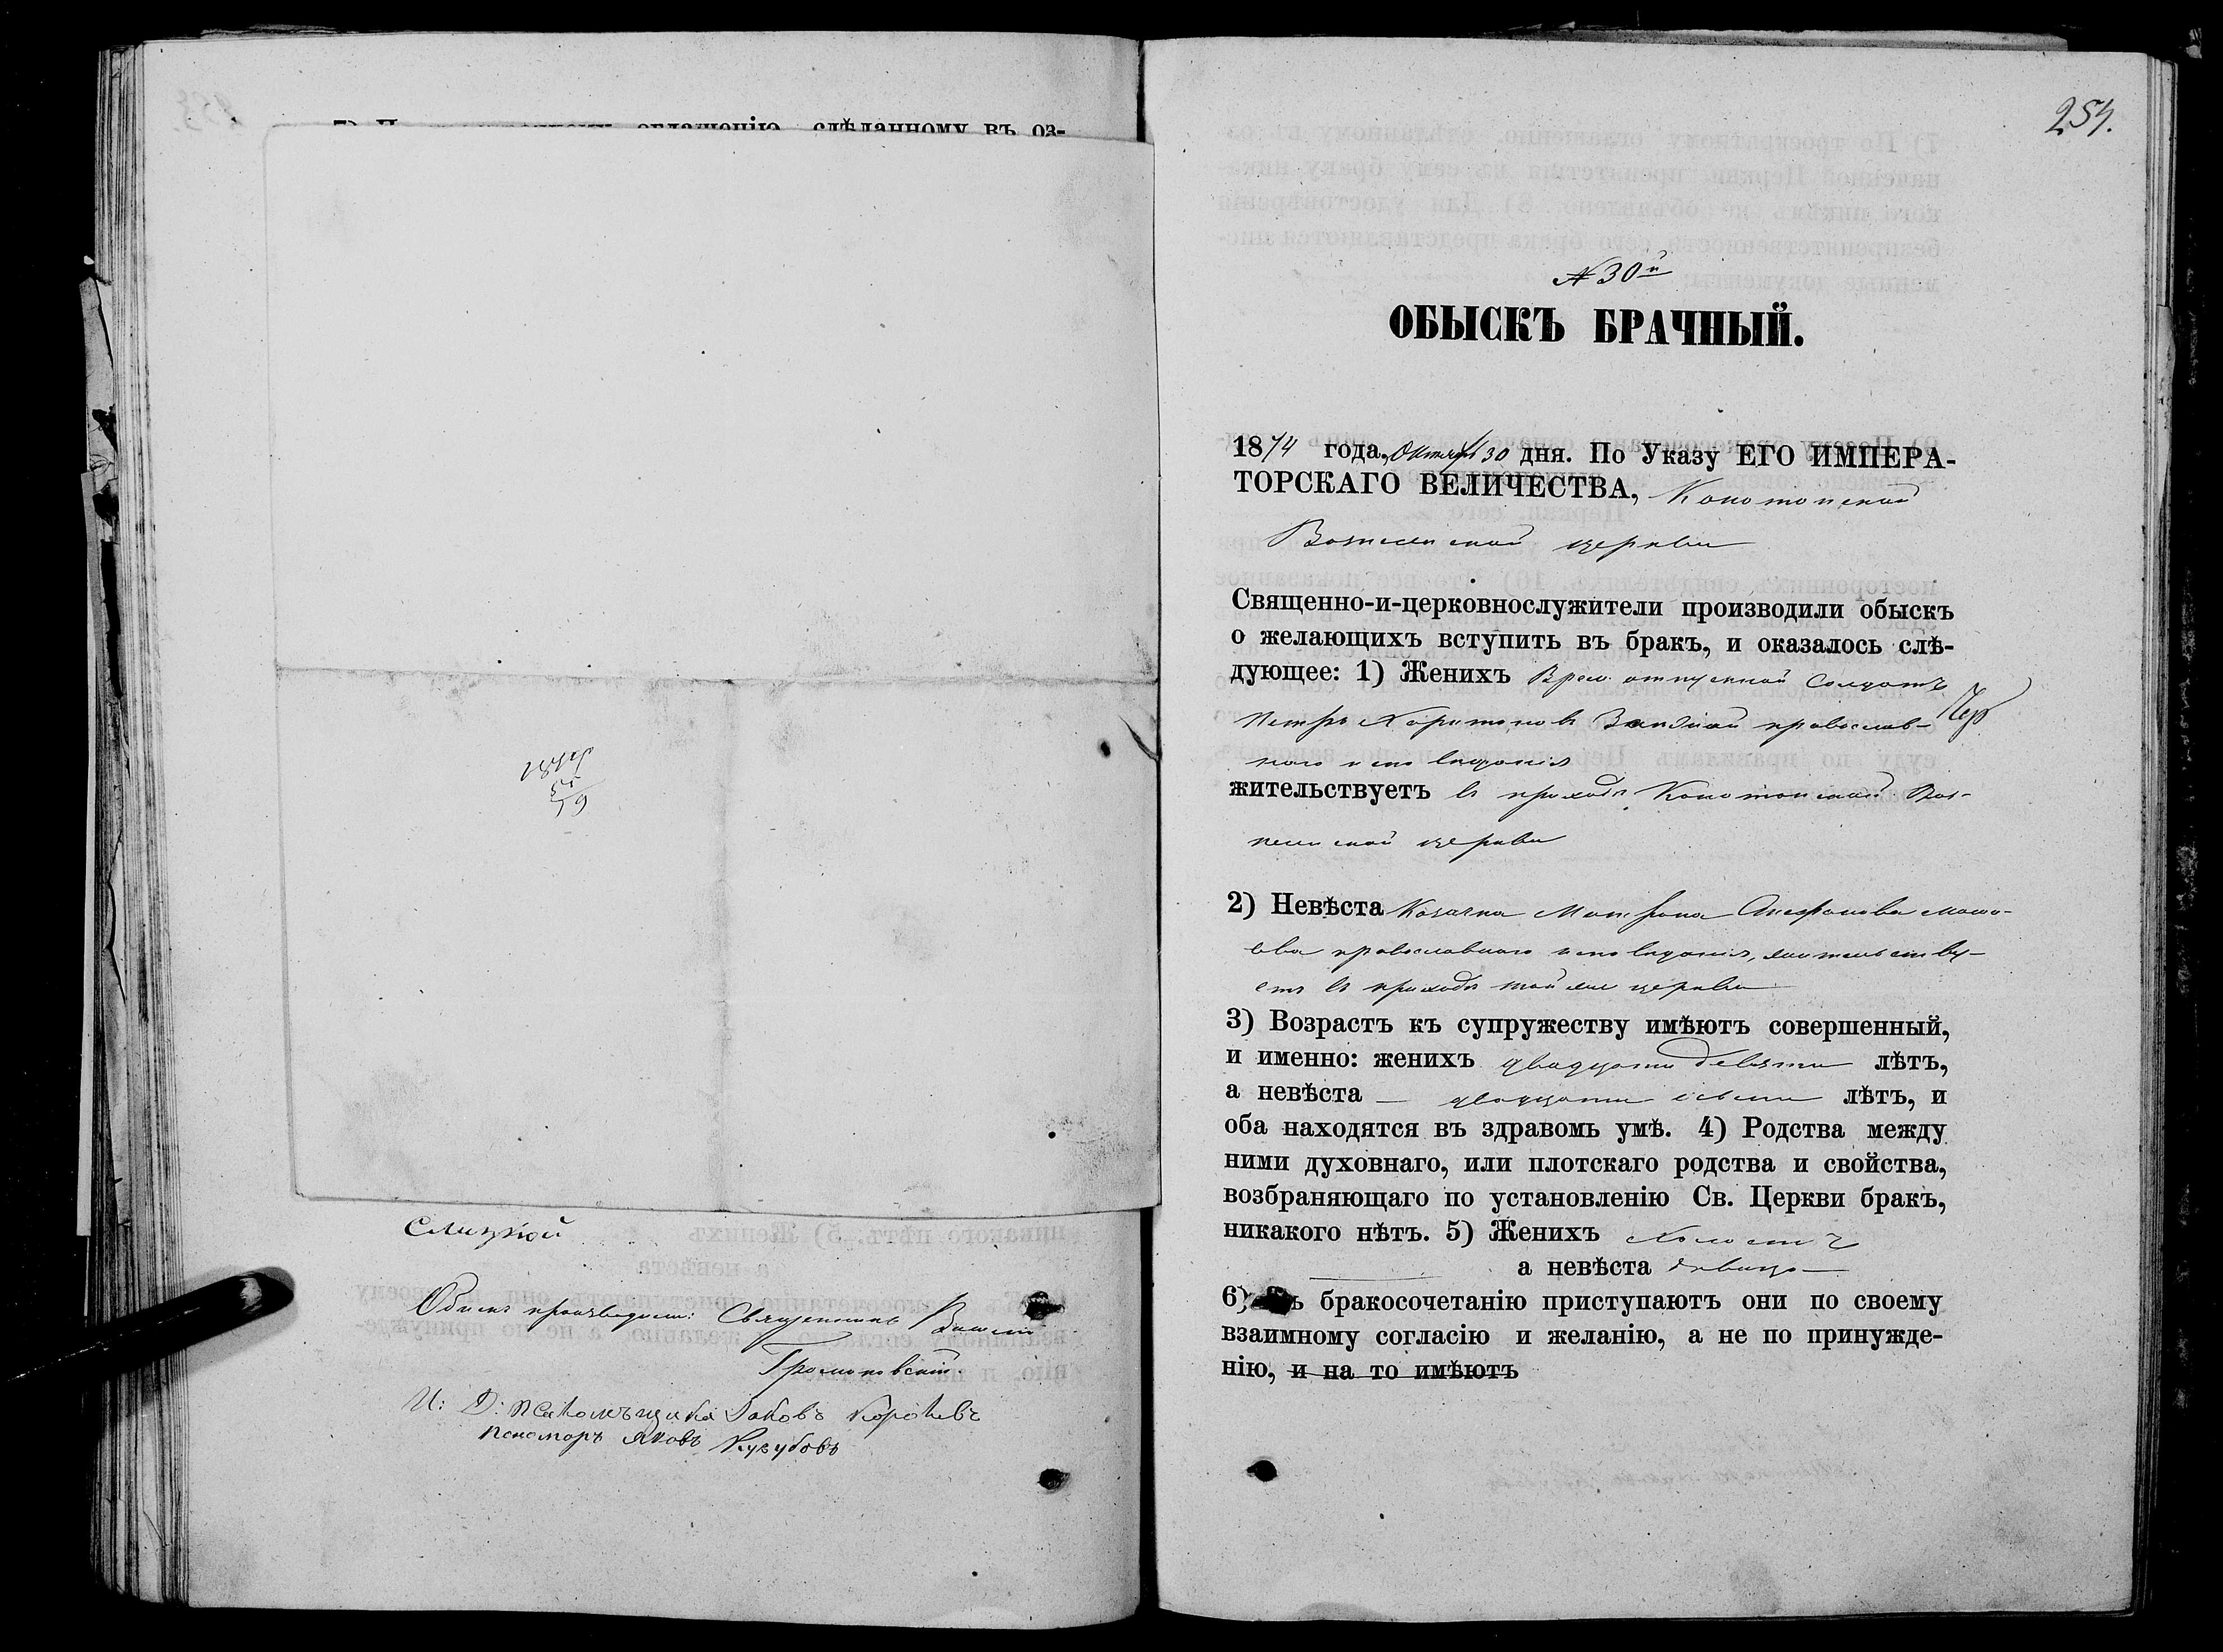 оглашенію, сдѣланному въ оз-
1874
55
19
Обыскъ производили: Священникъ
Громоковскій.
И: Д: Псаломъщика Яковъ
Пономарь Яковъ
254.
№ 30й
ОБЫСКЪ БРАЧНЫЙ.
1874 года, Октября 30 дня. По Указу ЕГО ИМПЕРА-
ТОРСКАГО ВЕЛИЧЕСТВА, Конотопской
Вознесенской церкви
Священно-и-церковнослужители производили обыскъ
о желающихъ вступить въ бракъ, и оказалось слѣ-
дующее: 1) Женихъ Врем. отпускной Солдатъ
Петръ Харитоновъ православ-
наго исповѣданія
жительствуетъ въ приходѣ Конотопской Воз-
несенской церкви
2) Невѣста Козачка Матрона
православнаго исповѣданія, жительству-
етъ въ приходѣ той же церкви
3) Возрастъ къ супружеству имѣютъ совершенный,
и именно: женихъ двадцати девяти лѣтъ,
а невѣста — двадцати лѣтъ, и
оба находятся въ здравомъ умѣ. 4) Родства между
ними духовнаго, или плотскаго родства и свойства,
возбраняющаго по установленію Св. Церкви бракъ,
никакого нѣтъ. 5) Женихъ холостъ
а невѣста дѣвица
6) бракосочетанію приступаютъ они по своему
взаимному согласію и желанію, а не по принужде-
нію, и на то имѣютъ